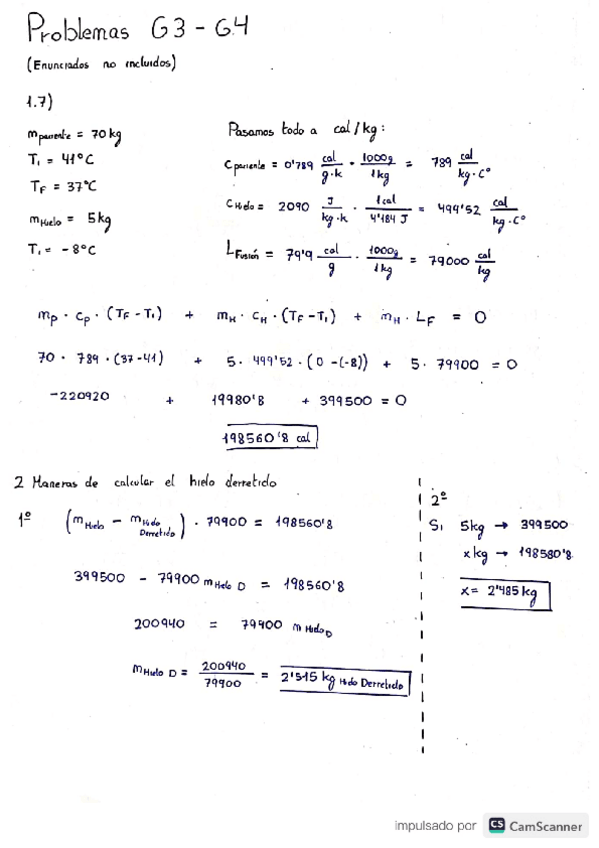 Problemas G3 - G4
(Enunciados no incluidos)
1.7)
mpaciente = 70 kg
T₁ = 41°C
TF = 37°C
mHielo = 5 kg
T₁ = -8°C
Pasamos todo a cal/kg:
Cpaciente = 0'789 cal/g·k · 1000g/1kg = 789 cal/kg·C°
CHielo = 2090 J/kg·k · 1cal/4'184 J = 499'52 cal/kg·C°
LFusión = 79'9 cal/g · 1000g/1kg = 79000 cal/kg
mp · cp · (TF - T₁) + mH · cH · (TF - T₁) + mH · LF = 0
70 · 789 · (37-41) + 5 · 499'52 · (0 -(-8)) + 5 · 79900 = 0
-220920 + 19980'8 + 399500 = 0
198560'8 cal
2 Maneras de calcular el hielo derretido
1º (mHielo - mHielo Derretido) · 79900 = 198560'8
399500 - 79900 mHielo D = 198560'8
200940 = 79900 mHieloD
mHielo D = 200940/79900 = 2'515 kg Hielo Derretido
2º
Si 5kg → 399500
x kg → 198580'8
x = 2'485 kg
impulsado por CS CamScanner